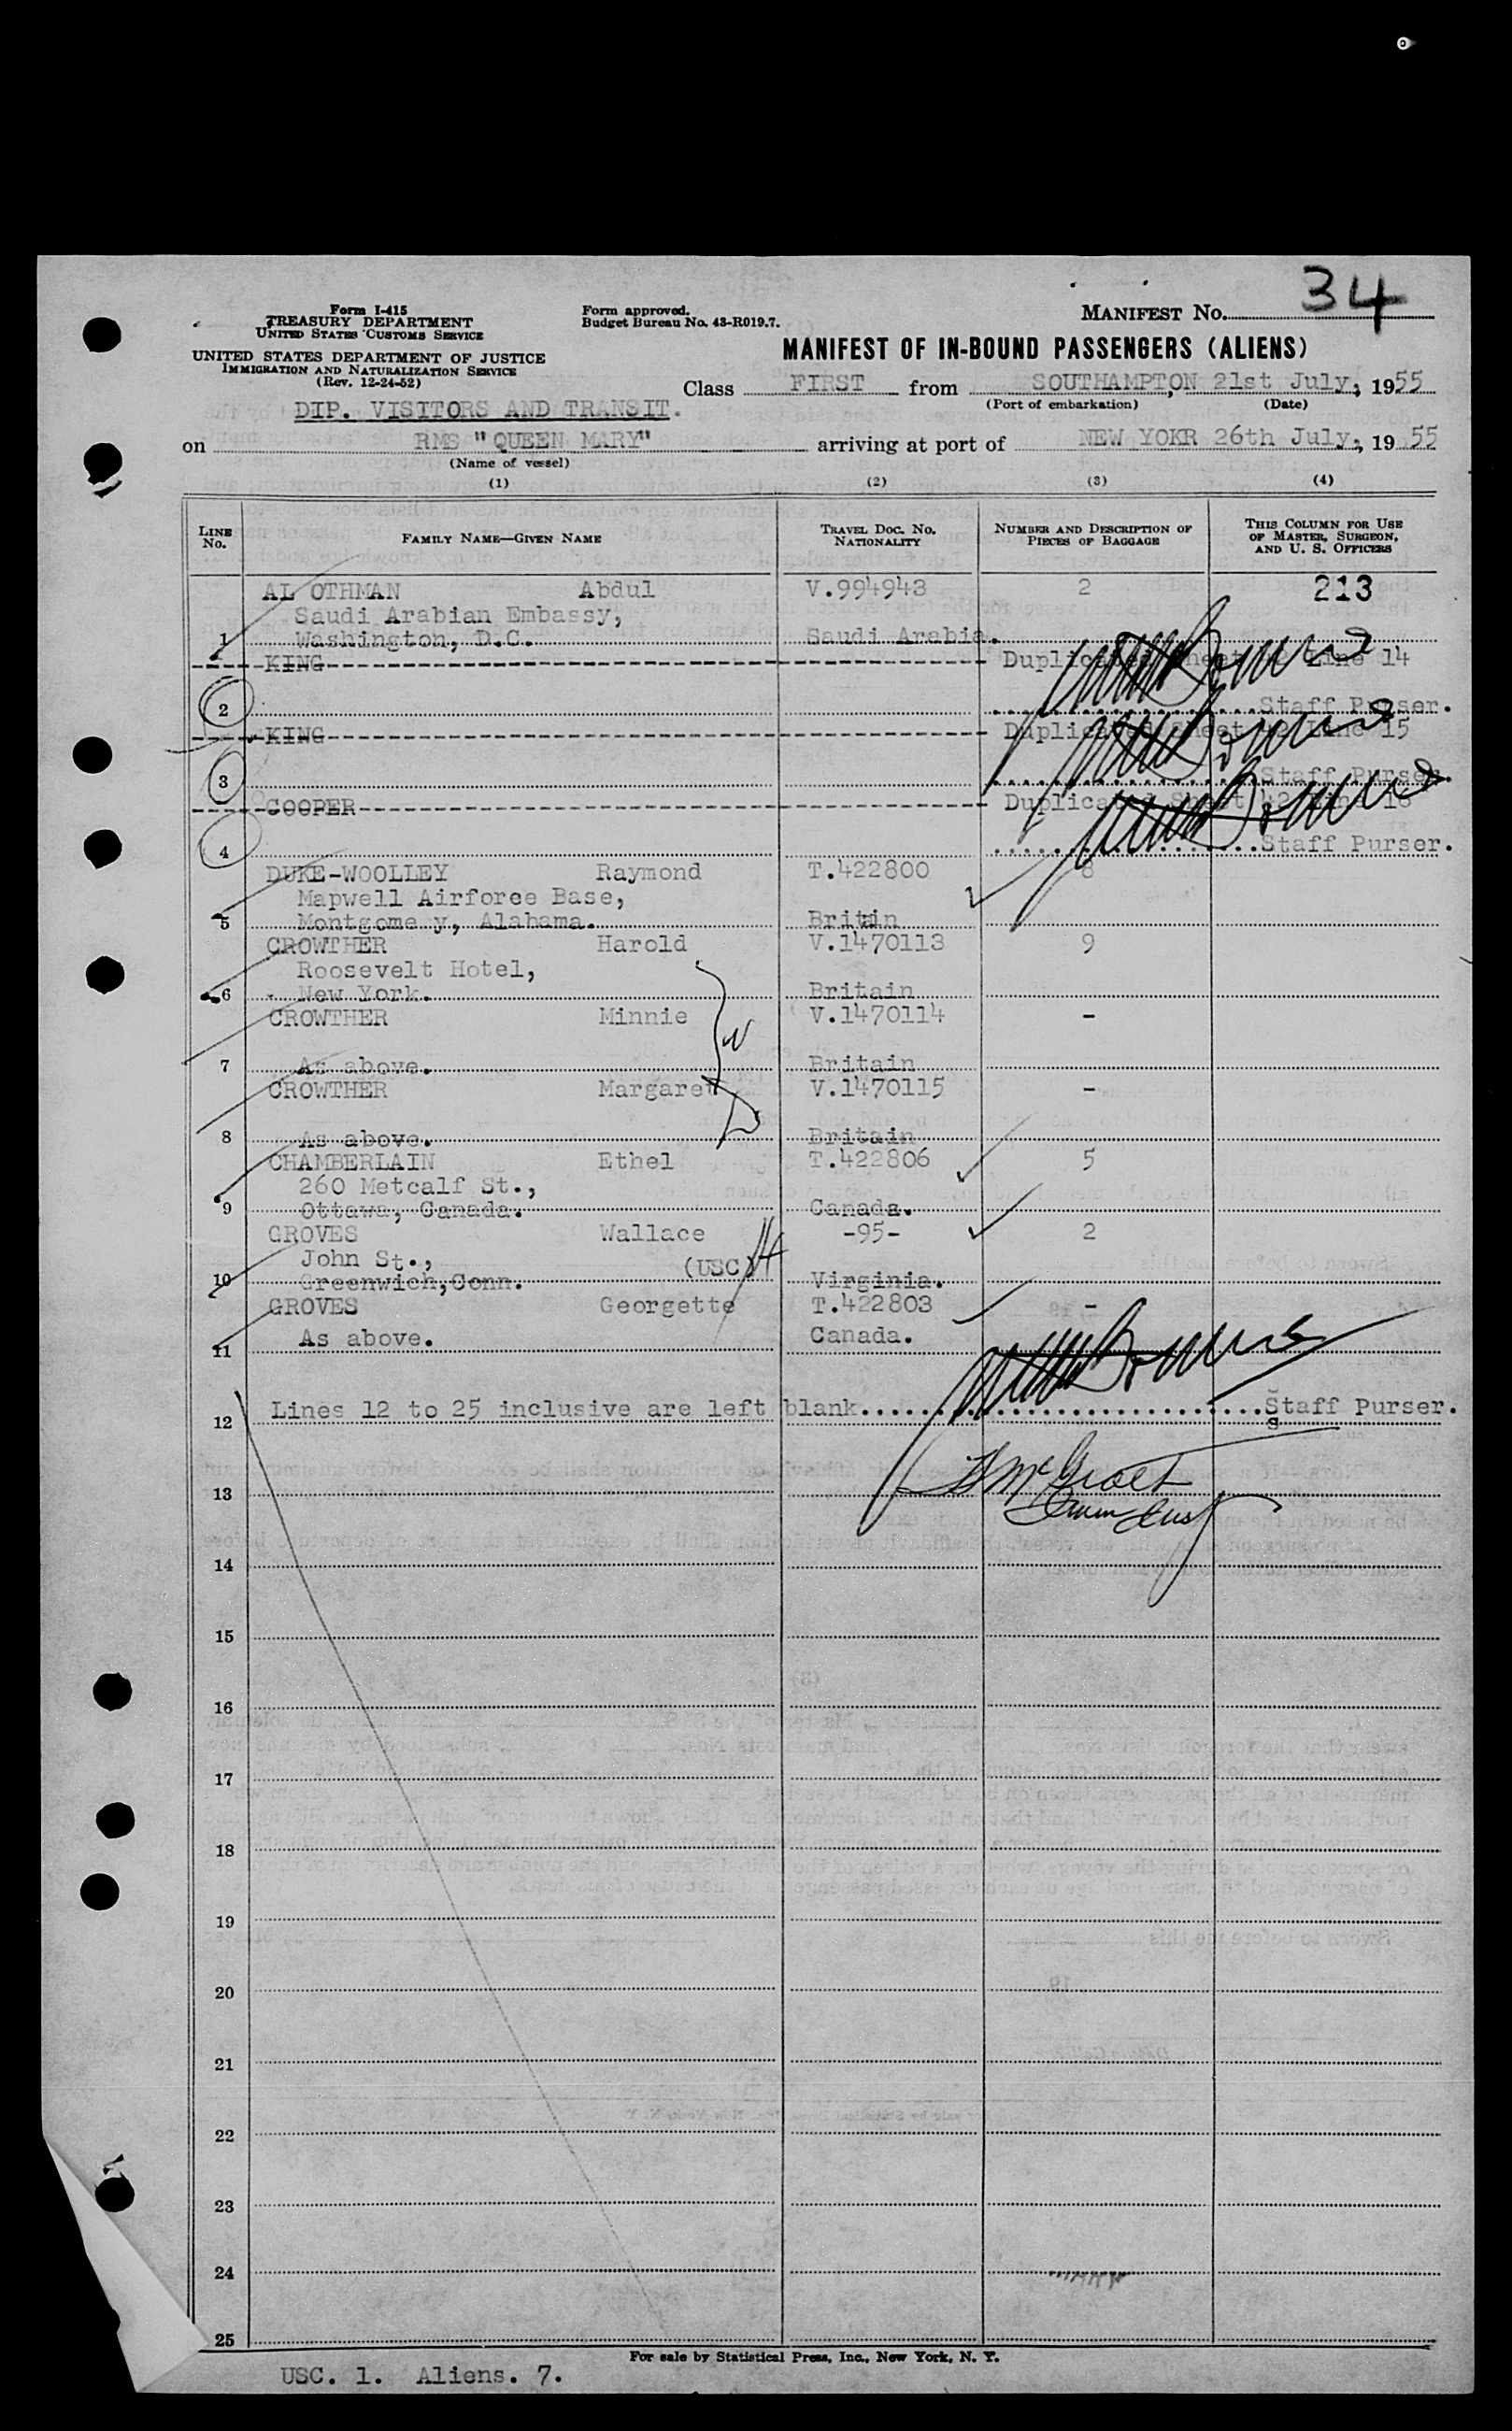 34
Form I-415
TREASURY DEPARTMENT
UNITED STATES CUSTOMS SERVICE
Form approved.
Budget Bureau No. 43-R019.7.
MANIFEST No.
UNITED STATES DEPARTMENT OF JUSTICE
IMMIGRATION AND NATURALIZATION SERVICE
(Rev. 12-24-52)
MANIFEST OF IN-BOUND PASSENGERS (ALIENS)
Class FIRST from SOUTHAMPTON, 21st July, 1955
(Port of embarkation) (Date)
DIP. VISITORS AND TRANSIT.
on RMS "QUEEN MARY" arriving at port of NEW YOKR 26th July, 1955
(Name of vessel)
(1) (2) (3) (4)
LINE No. FAMILY NAME—GIVEN NAME TRAVEL DOC. No. NATIONALITY NUMBER AND DESCRIPTION OF PIECES OF BAGGAGE THIS COLUMN FOR USE OF MASTER, SURGEON, AND U. S. OFFICERS
AL OTHMAN Abdul V.994943 2 213
Saudi Arabian Embassy,
1 Washington, D.C. Saudi Arabia.
KING Duplicated Sheet Line 14
2 Staff Purser.
KING Duplicated Sheet Line 15
3 Staff Purser.
COOPER Duplicated Sheet 42 Line 16
4 Staff Purser.
DUKE-WOOLLEY Raymond T.422800 8
Mapwell Airforce Base,
5 Montgome y, Alabama. Britain
CROWTHER Harold V.1470113 9
Roosevelt Hotel,
6 New York. Britain
CROWTHER Minnie V.1470114 -
W
7 As above. Britain
CROWTHER Margaret V.1470115 -
D
8 As above. Britain
CHAMBERLAIN Ethel T.422806 5
260 Metcalf St.,
9 Ottawa, Canada. Canada.
GROVES Wallace -95- 2
John St., (USC)
10 Greenwich,Conn. Virginia.
GROVES Georgette T.422803 -
11 As above. Canada.
12 Lines 12 to 25 inclusive are left blank. Staff Purser.
13
14
15
16
17
18
19
20
21
22
23
24
25
For sale by Statistical Press, Inc., New York, N. Y.
USC. 1. Aliens. 7.